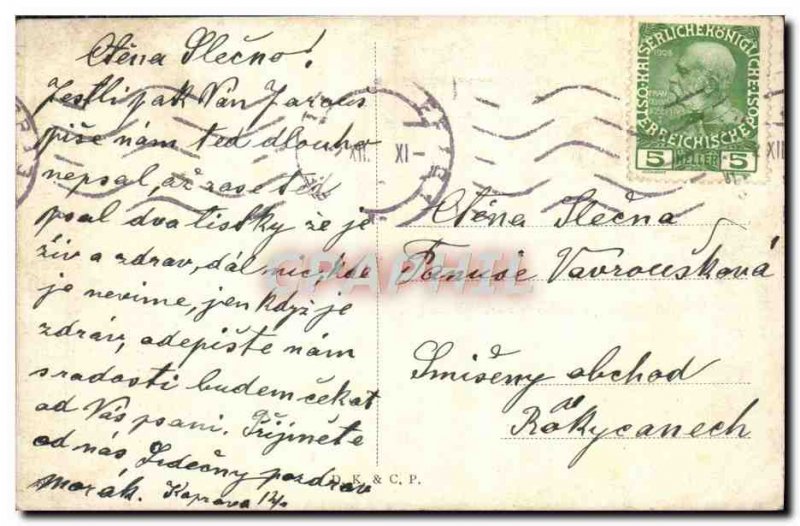 Ctěna Slečno!
Jestlipak Ván Jarouš
piše nám teď dlouho
nepsal, až zase teď
psal dva listky že je
živ a zdráv, dál nic, kde
je nevime, jen když je
zdráv, odepište nám
s radosti budem čekat
od Vás psani. Přijměte
od nás, Srdečny pozdrav
Morák. Koprova 12/
D. K. & C. P.
XII. XI-
KAISERLICHE KÖNIGLICHE ÖSTERREICHISCHE POST
1908
5 HELLER 5
XII
Ctěna Slečna
Fanuše Vavroušková
Smišeny obchod
Rokycanech
CPAPHIL